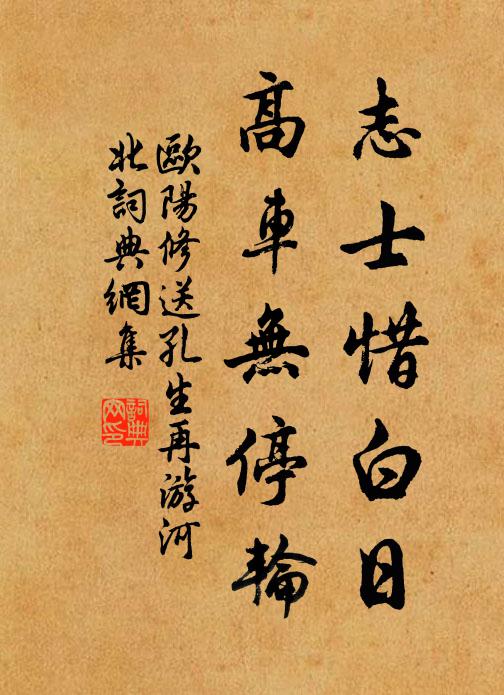 志士惜白日
高車無停輪
歐陽修送孔生再游河
北詞典網集
詞典
网印